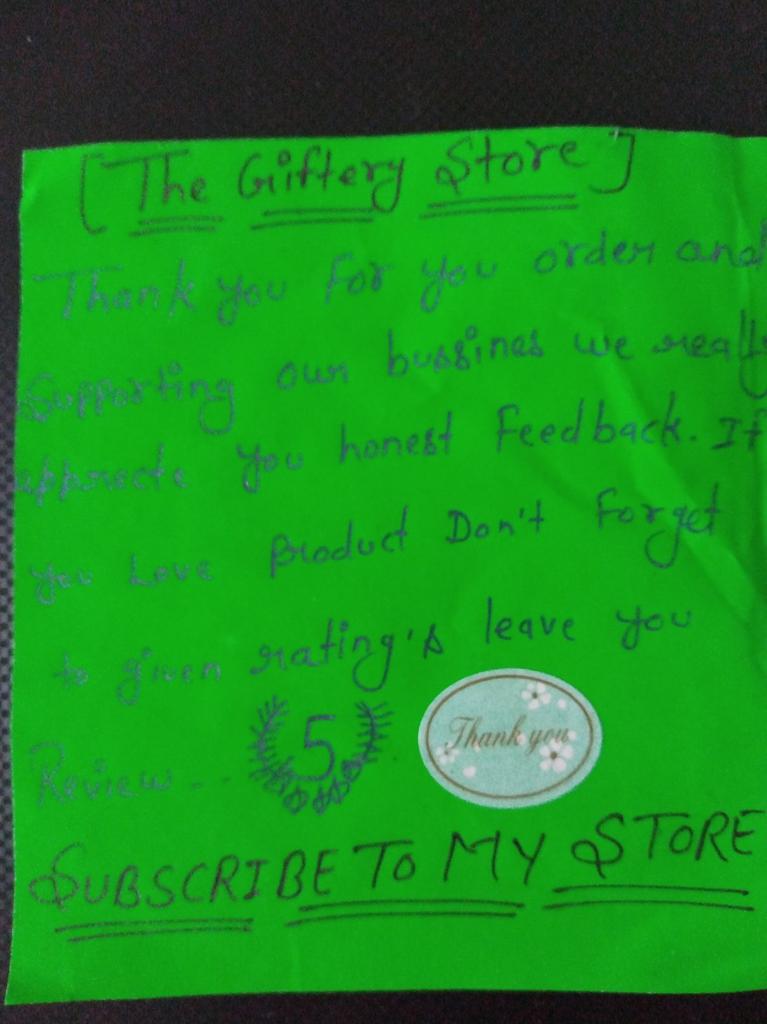 [The Giftery Store]
Thank you for you order and
Supporting our bussines we really
apprecte you honest Feedback. If
you Love Product Don't Forget
to given rating's leave you
Review - - 5
Thank you
SUBSCRIBE TO MY STORE